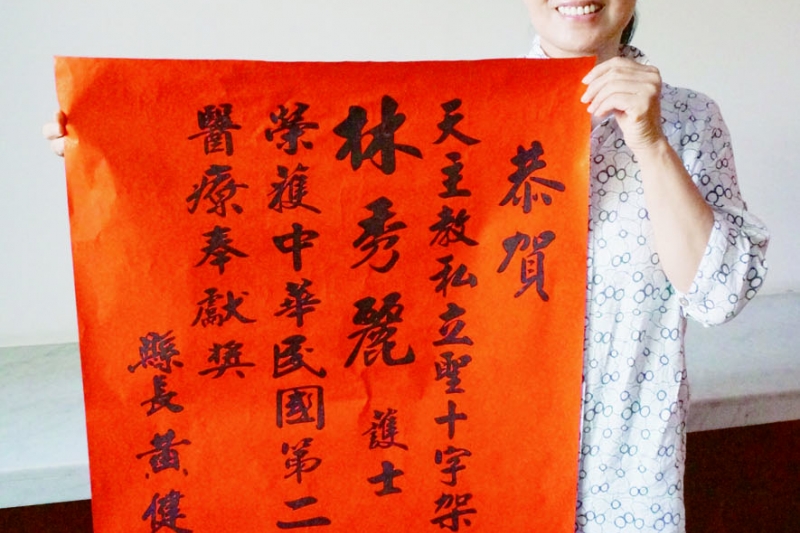 恭賀
天主教私立聖十字架
林秀麗 護士
榮獲中華民國第二
醫療奉獻獎
縣長黃健